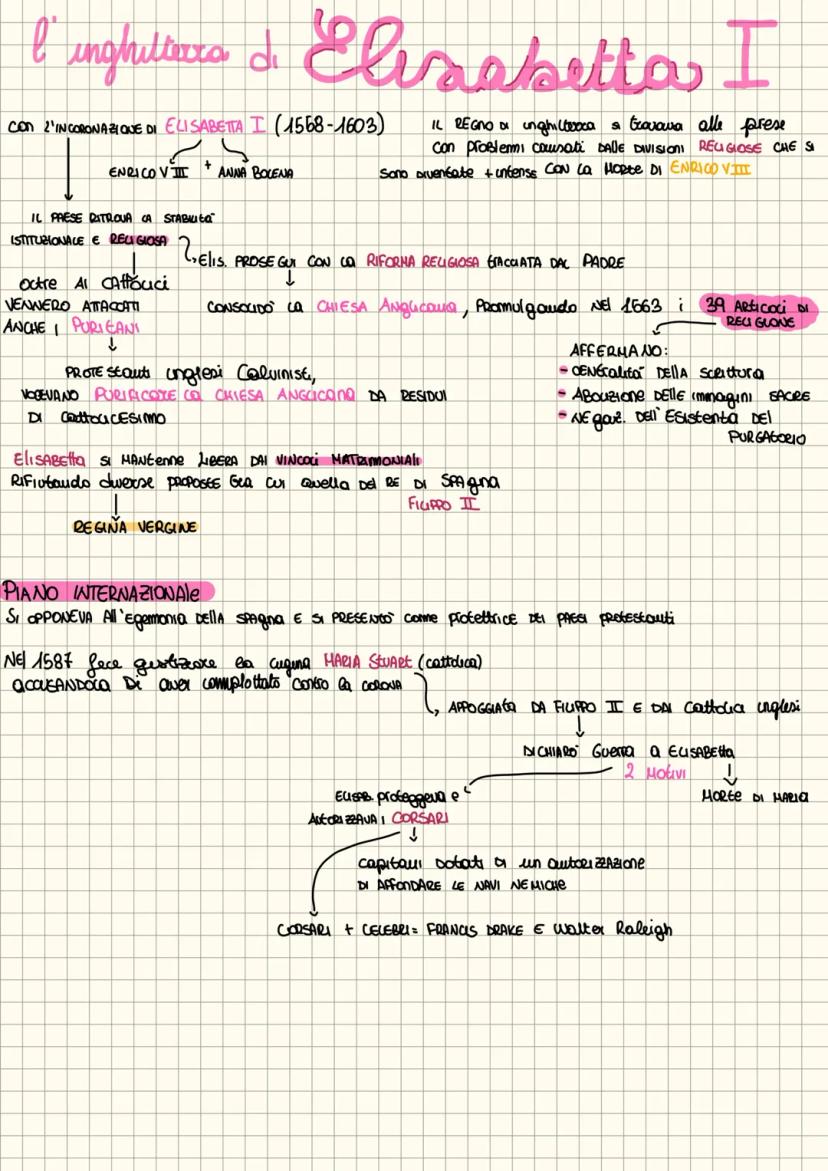 l'inghilterra di Elisabetta I
CON L'INCORONAZIONE DI ELISABETTA I (1558-1603)
ENRICO VIII + ANNA BOLENA
IL REGNO DI inghilterra si trovava alle prese
con problemi causati DALLE DIVISIONI RELIGIOSE CHE SI
SONO DIVENTATE + intense CON LA MORTE DI ENRICO VIII
IL PAESE RITROVA LA STABILITA'
ISTITUZIONALE E RELIGIOSA
Elis. PROSEGUI CON LA RIFORMA RELIGIOSA tracciata DAL PADRE
oltre AI CATTOLICI
VENNERO ATTACCATI
ANCHE I PURITANI
CONSOLIDO' LA CHIESA Anglicana, Promulgando NEL 1563 i 39 ARTICOLI DI
RELIGIONE
PROTEstanti inglesi Calvinisti,
VOLEVANO PURIFICARE LA CHIESA ANGLICANA DA RESIDUI
DI CATTOLICESIMO
AFFERMANO:
- CENTRALITA' DELLA SCRITTURA
- ABOLIZIONE DELLE immagini SACRE
- NEgaz. DELL'ESISTENZA DEL
PURGATORIO
ELISABETTA SI MANTENNE LIBERA DAI VINCOLI MATRIMONIALI
RIFIUTANDO diverse PROPOSTE tra cui Quella DEL RE DI SPAgna
FILIPPO II
REGINA VERGINE
PIANO INTERNAZIONALE
SI OPPONEVA All'Egemonia DELLA SPAgna E SI PRESENTO' come protettrice DEI PAESI PROTESTANTI
NEL 1587 fece giustiziare la cugina MARIA STUART (cattolica)
ACCUSANDOLA DI aver complottato contro la CORONA
APPOGGIATA DA FILIPPO II E DAI Cattolici inglesi
DICHIARO' Guerra a ELISABETTA
2 MOTIVI
ELISAB. proteggeva e
AUTORIZZAVA I CORSARI
MORTE DI MARIA
capitani Dotati DI un autorizzazione
DI AFFONDARE LE NAVI NEMICHE
CORSARI + CELEBRI= FRANCIS DRAKE E Walter Raleigh